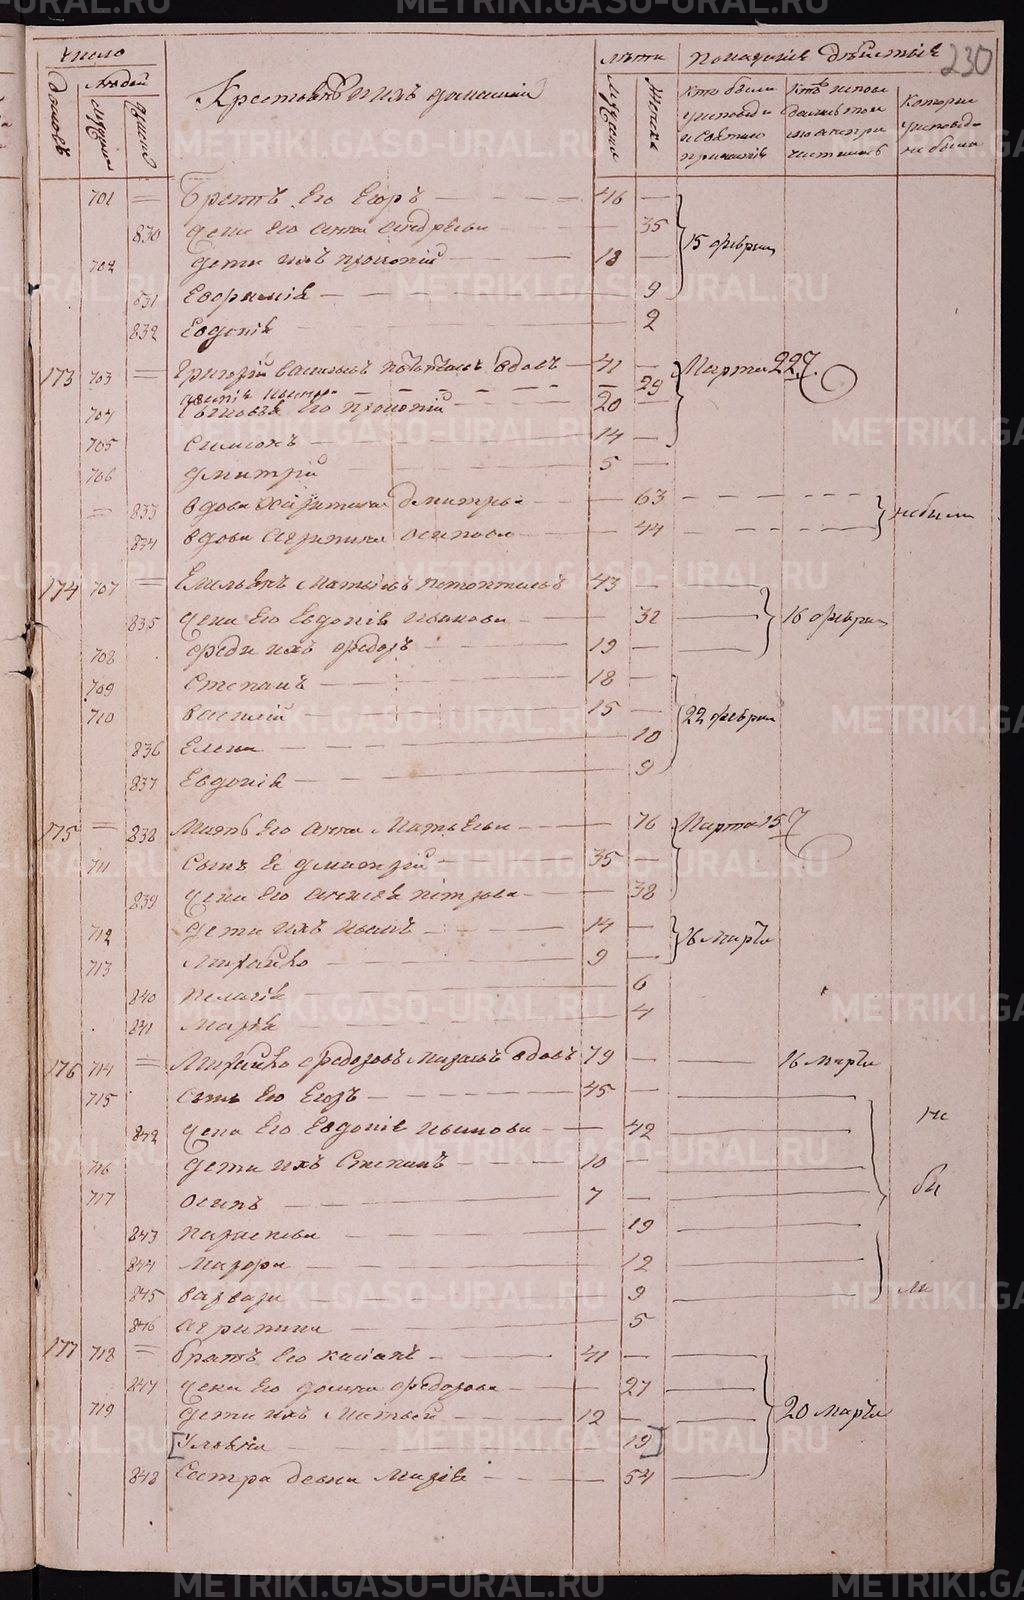 METRIKI.GASO-URAL.RU
230
число
домовъ
людей
мужеска
женска
Крестьянѣ и ихъ домашнии
лѣта
Мужска
Женска
Показание дѣйствія
Кто были
исповеди
и святаго
причастія
Кто испове
дались токмо
а не при
чистились
Которые
исповеди
не были
701 Братъ его Егоръ 46
830 жена его Анна Андрѣева 35
15 февраля
702 дети ихъ Прокопий 13
831 Евфимия 9
832 Евдокия 2
173 703 Григорий Васильевъ вдовъ 41
Марта 22
29
704 его Прокопий 20
705 Симионъ 14
706 Дмитрий 5
833 вдова Дмитрева 63
834 вдова Агрипина Осипова 44
не были
174 707 43
835 жена его Евдокия Иванова 32
16 февраля
708 дѣти ихъ Федоръ 19
709 Степанъ 18
710 Василий 15
22 февраля
836 Елена 10
837 Евдокия 9
175 838 Мать его Анна Матвѣева 76
Марта 15
711 Сынъ ее Дмитрий 35
839 жена его Анисья Петрова 38
712 дети ихъ Иванъ 14
16 марта
713 Михайло 9
840 Пелагия 6
841 Мария 4
176 714 Михайло Федоровъ вдовъ 79
16 марта
715 сынъ его Егоръ 45
842 жена его Евдокия Иванова 42
716 дети ихъ Степанъ 10
717 Осипъ 7
не
бы
ли
843 Параскева 19
844 Мавра 12
845 Варвара 9
846 Агрипина 5
177 718 братъ его 41
847 жена его Домна Федорова 27
719 дети ихъ Матвей 12
20 марта
[Ульяна 19]
848 Сестра девка Мария 54